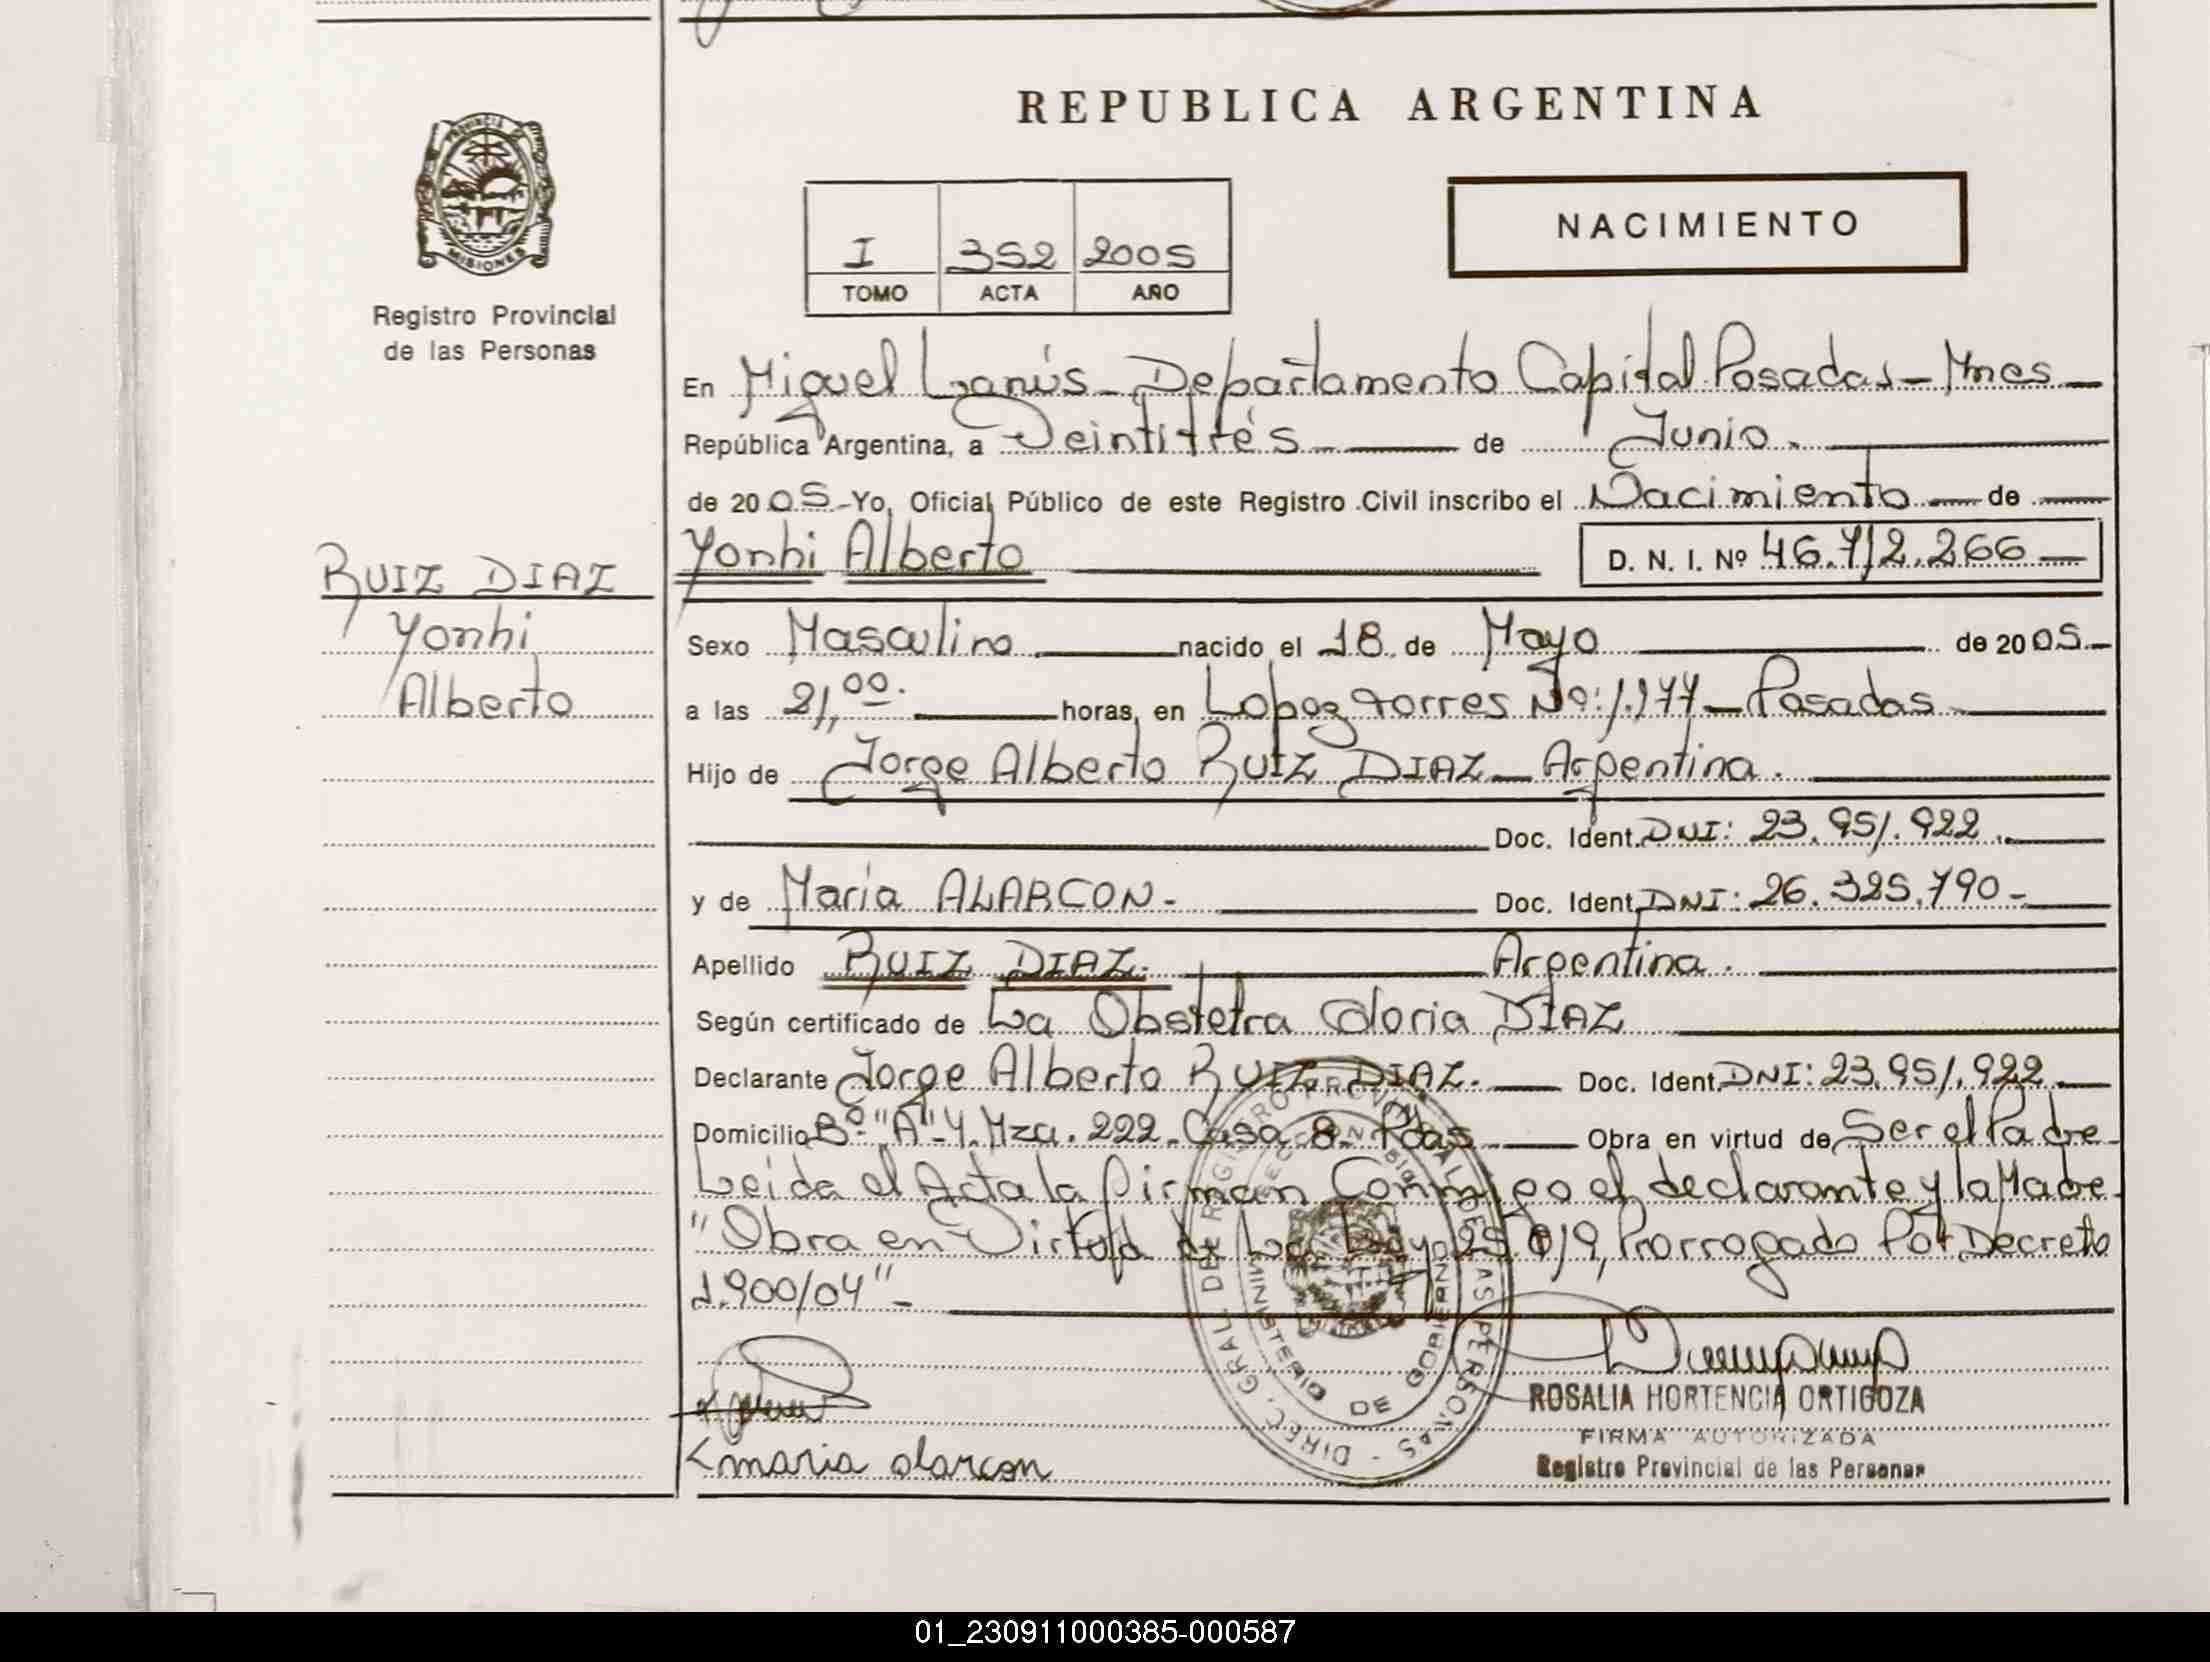 REPUBLICA ARGENTINA
PROVINCIA DE MISIONES
Registro Provincial
de las Personas
I 352 2005
TOMO ACTA AÑO
NACIMIENTO
En Miguel Lanús - Departamento Capital Posadas - Mnes
República Argentina, a Veintitrés de Junio.
de 2005 Yo, Oficial Público de este Registro Civil inscribo el Nacimiento de
RUIZ DIAZ
Yonhi
Alberto
Yonhi Alberto D. N. I. Nº 46.712.266
Sexo Masculino nacido el 18 de Mayo de 2005
a las 21,00. horas, en Lopez torres Nº: 1.177 - Posadas
Hijo de Jorge Alberto RUIZ DIAZ - Argentina.
Doc. Ident. DNI: 23.951.922.
y de Maria ALARCON - Doc. Ident. DNI: 26.325.790 -
Apellido RUIZ DIAZ. Argentina.
Según certificado de La Obstetra Gloria DIAZ
Declarante Jorge Alberto RUIZ DIAZ. Doc. Ident. DNI: 23.951.922
Domicilio Bº "A"-4. Mza. 222. Casa 8 - Pdas Obra en virtud de Ser el Padre
Leida el Acta la firman Conmigo el declarante y la Madre
"Obra en Virtud de La Ley 25.819, Prorrogado Por Decreto
1.900/04" -
DIREC. GRAL. DE REGISTRO PROVINCIAL DE LAS PERSONAS
MINISTERIO DE GOBIERNO
ROSALIA HORTENCIA ORTIGOZA
FIRMA AUTORIZADA
Registro Provincial de las Personas
maria alarcon
01_230911000385-000587